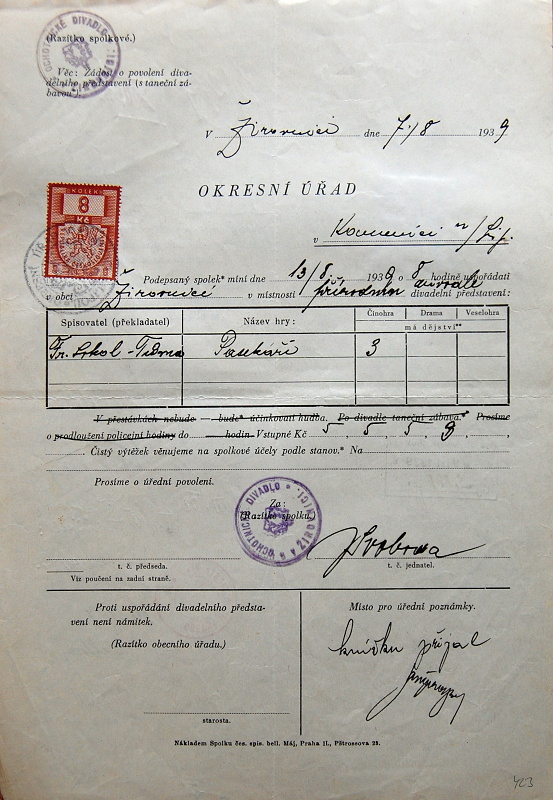 OCHOTNICKÉ DIVADLO
(Razítko spolkové.)
Věc: Žádost o povolení diva-
delního představení (s taneční zá-
bavou*).
V Žirovnici dne 7./8 1939
OKRESNÍ ÚŘAD
v Kamenici n/Lip.
KOLEK
8
Kč
Podepsaný spolek* míní dne 13/8. 1939 o 8 hodině uspořádati
v obci Žirovnici v místnosti přírodním divadle divadelní představení:
Spisovatel (překladatel) Název hry: Činohra Drama Veselohra
má dějství**
Fr. Sokol-Tůma Pasekáři 3
V přestávkách nebude — bude* účinkovati hudba. Po divadle taneční zábava.* Prosíme
o prodloužení policejní hodiny do hodin. Vstupné Kč 5, 5, 5, 3,
Čistý výtěžek věnujeme na spolkové účely podle stanov.* Na
Prosíme o úřední povolení.
Za:
(Razítko spolku.)
OCHOTNICKÉ DIVADLO
Svoboda
t. č. předseda. t. č. jednatel.
Viz poučení na zadní straně.
Proti uspořádání divadelního předsta-
vení není námitek.
(Razítko obecního úřadu.)
starosta.
Místo pro úřední poznámky.
knížku přijal
Nákladem Spolku čes. spis. bell. Máj, Praha II., Pštrossova 28.
423